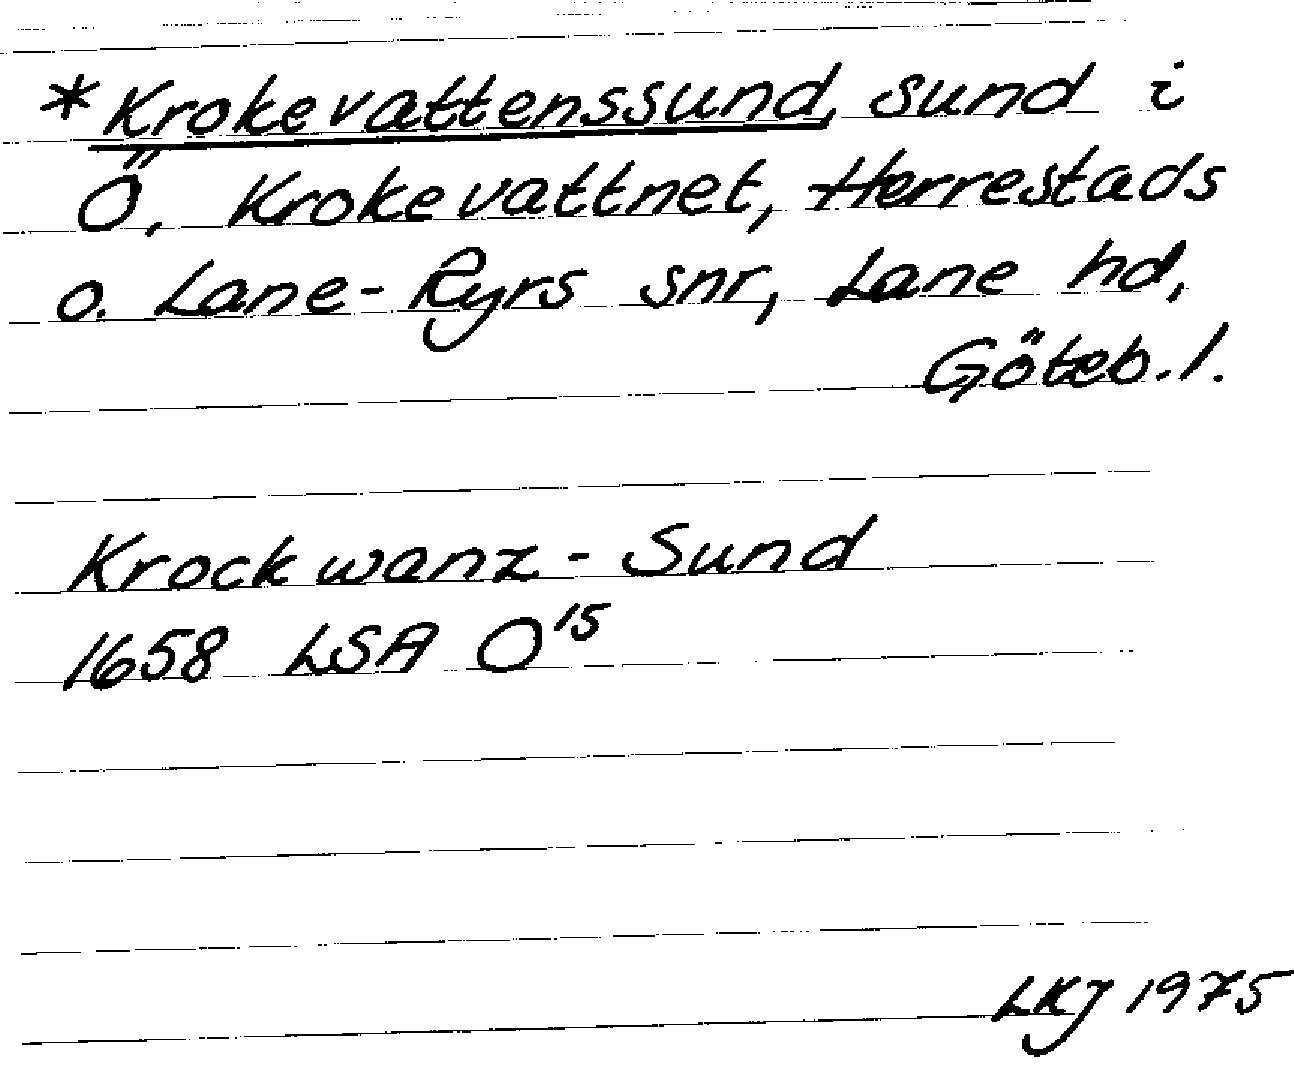 *Krokevattenssund, sund i
Ö. Krokevattnet, Herrestads
o. Lane-Ryrs snr, Lane hd,
Göteb. l.
Krockwanz-Sund
1658 LSA O¹⁵
LKJ 1975